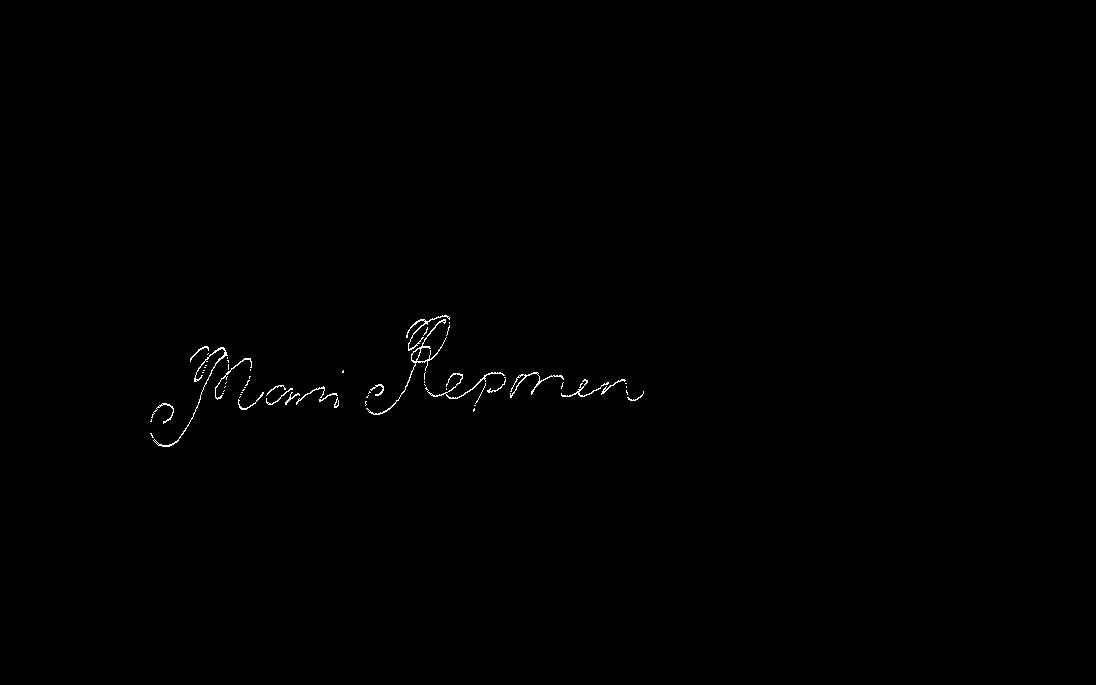 Mari Repmen